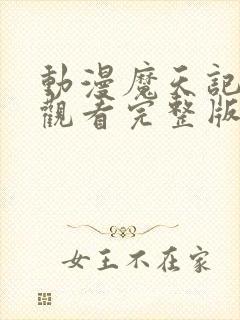 動漫魔天記
觀看完整版
女王不在家